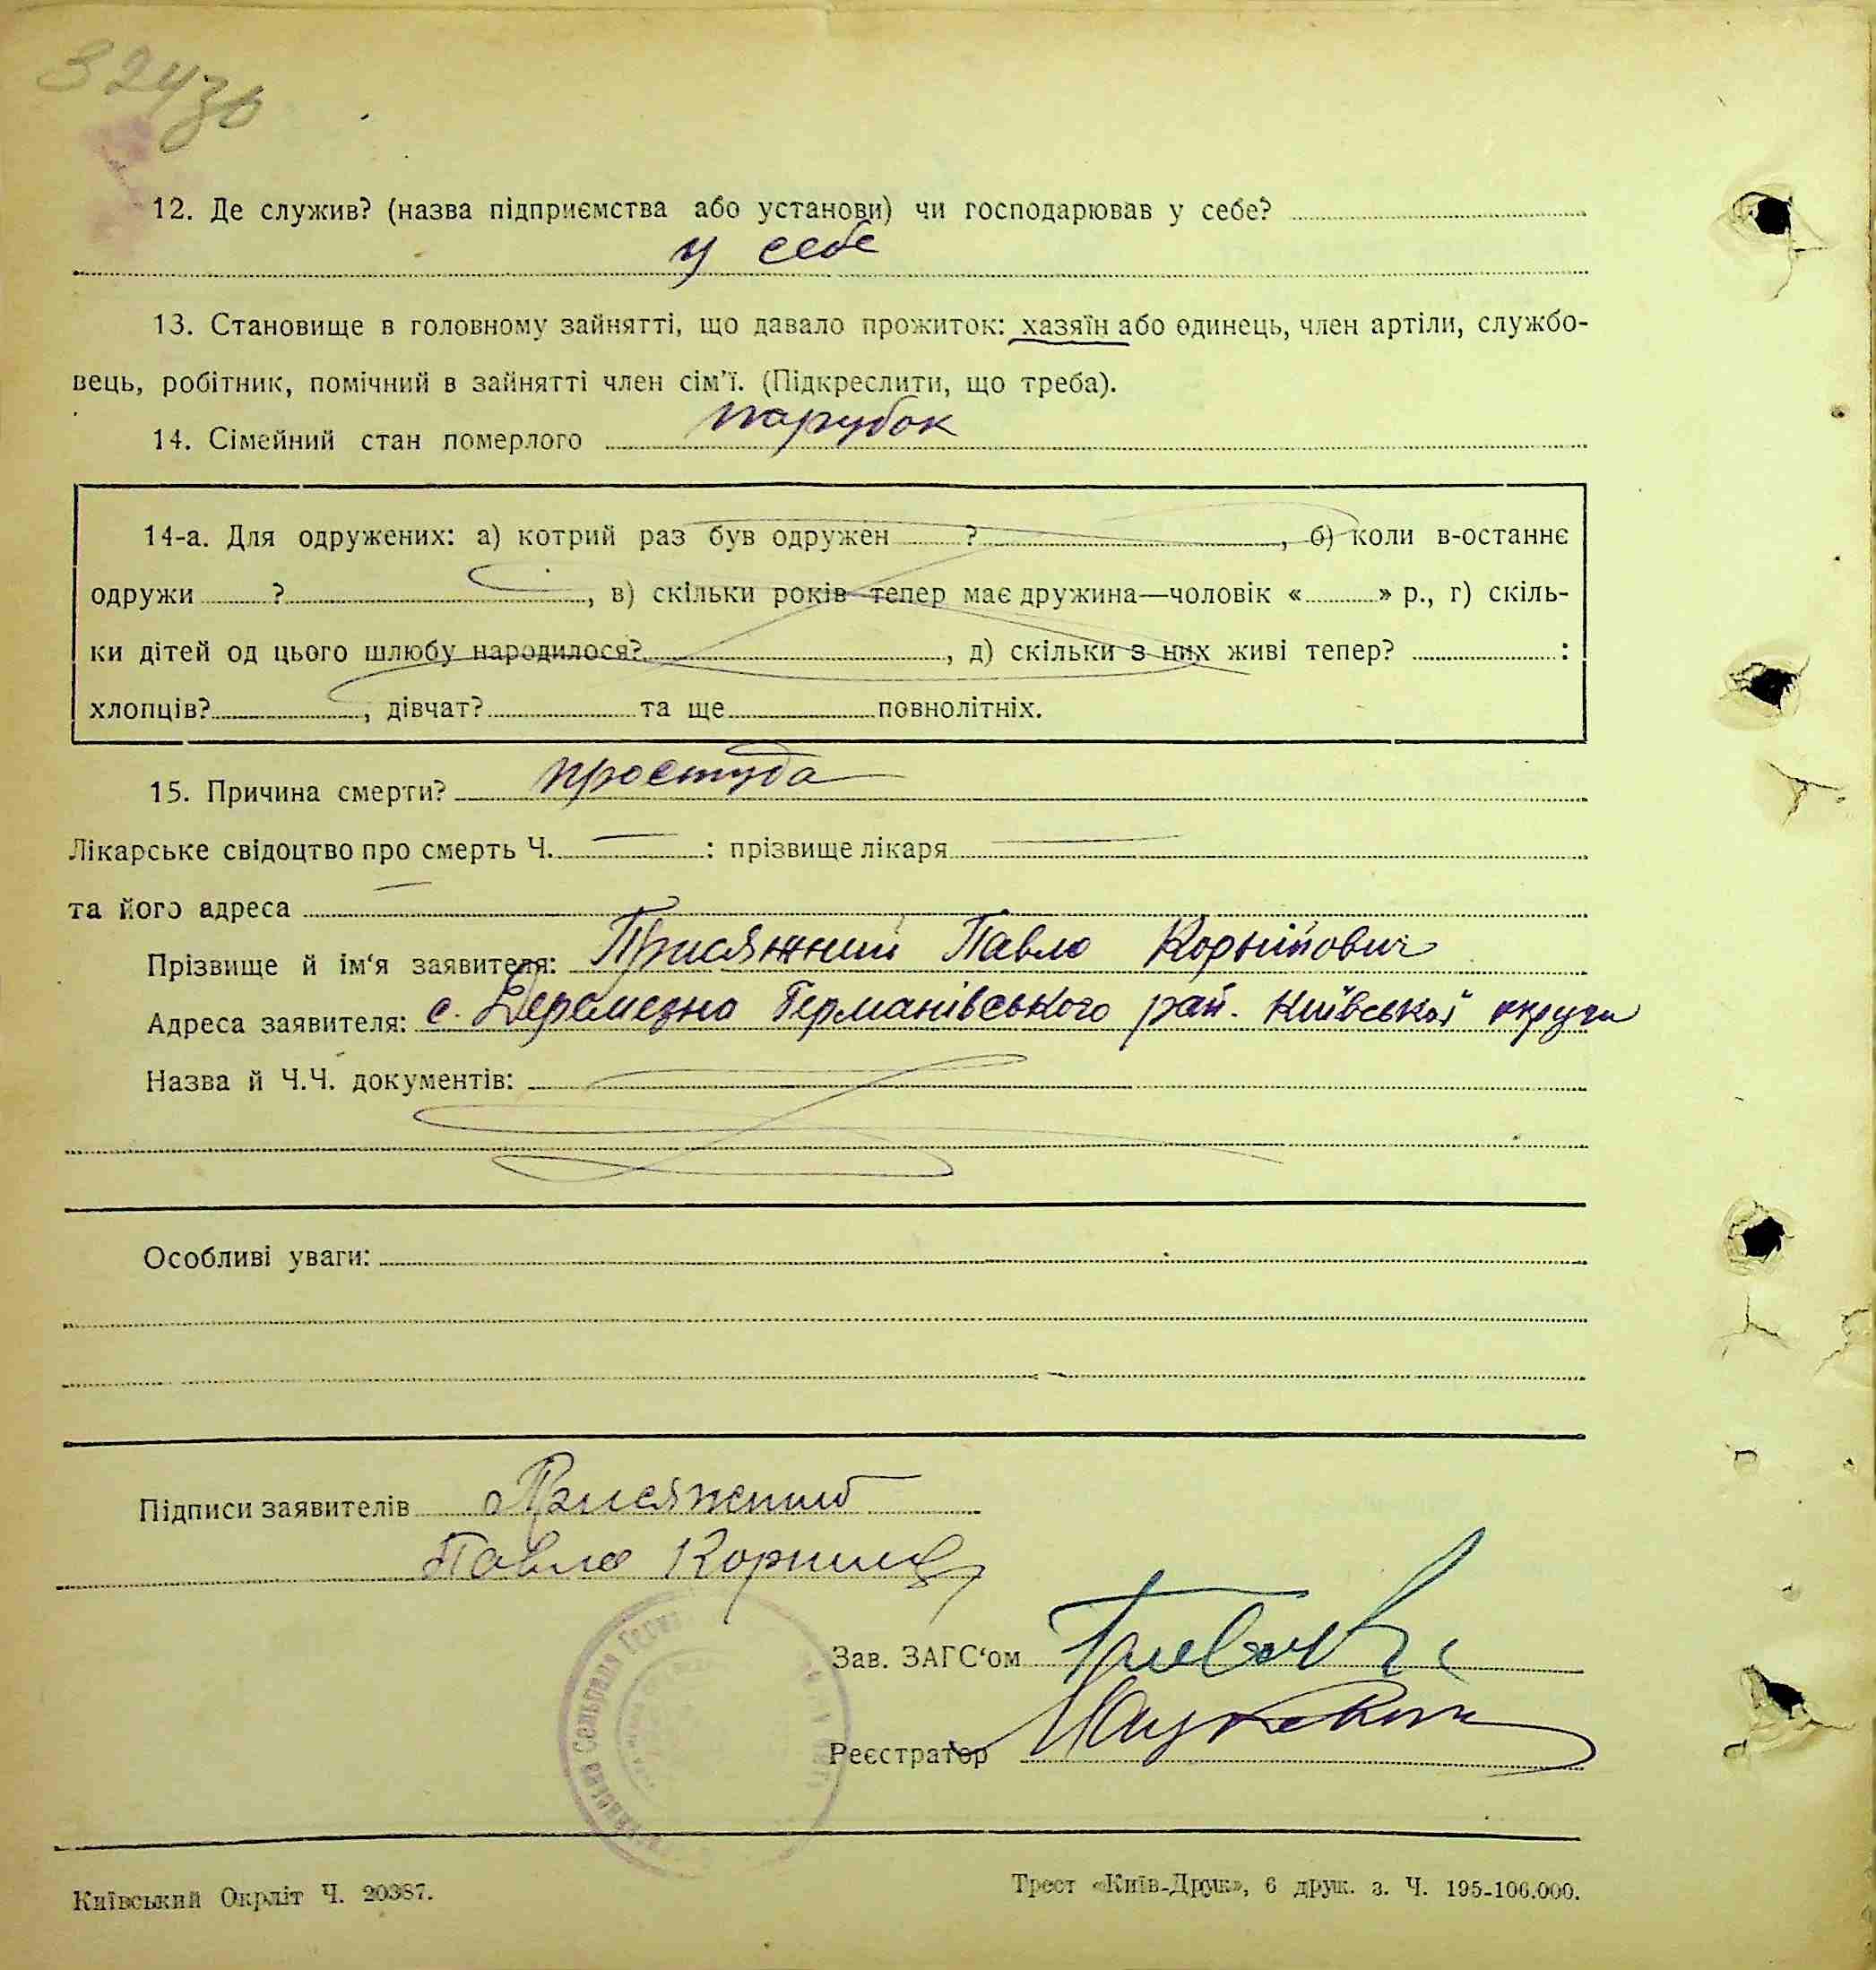 324зв
12. Де служив? (назва підприємства або установи) чи господарював у себе?
у себе
13. Становище в головному зайнятті, що давало прожиток: хазяїн або одинець, член артіли, службо-
вець, робітник, помічний в зайнятті член сім'ї. (Підкреслити, що треба).
14. Сімейний стан померлого парубок
14-а. Для одружених: а) котрий раз був одружен ? , б) коли в-останнє
одружи ? , в) скільки років тепер має дружина—чоловік « » р., г) скіль-
ки дітей од цього шлюбу народилося? , д) скільки з них живі тепер? :
хлопців? , дівчат? та ще повнолітніх.
15. Причина смерти? простуда
Лікарське свідоцтво про смерть Ч. : прізвище лікаря
та його адреса
Прізвище й ім'я заявителя: Присяжний Павло Корнійович
Адреса заявителя: с. Деремезна Германівського рай. Київської округи
Назва й Ч.Ч. документів:
Особливі уваги:
Підписи заявителів Присяжний
Павло
Зав. ЗАГС'ом
Реєстратор
Сельрада
Київський Окрліт Ч. 20387.
Трест «Київ-Друк», 6 друк. з. Ч. 195-106.000.